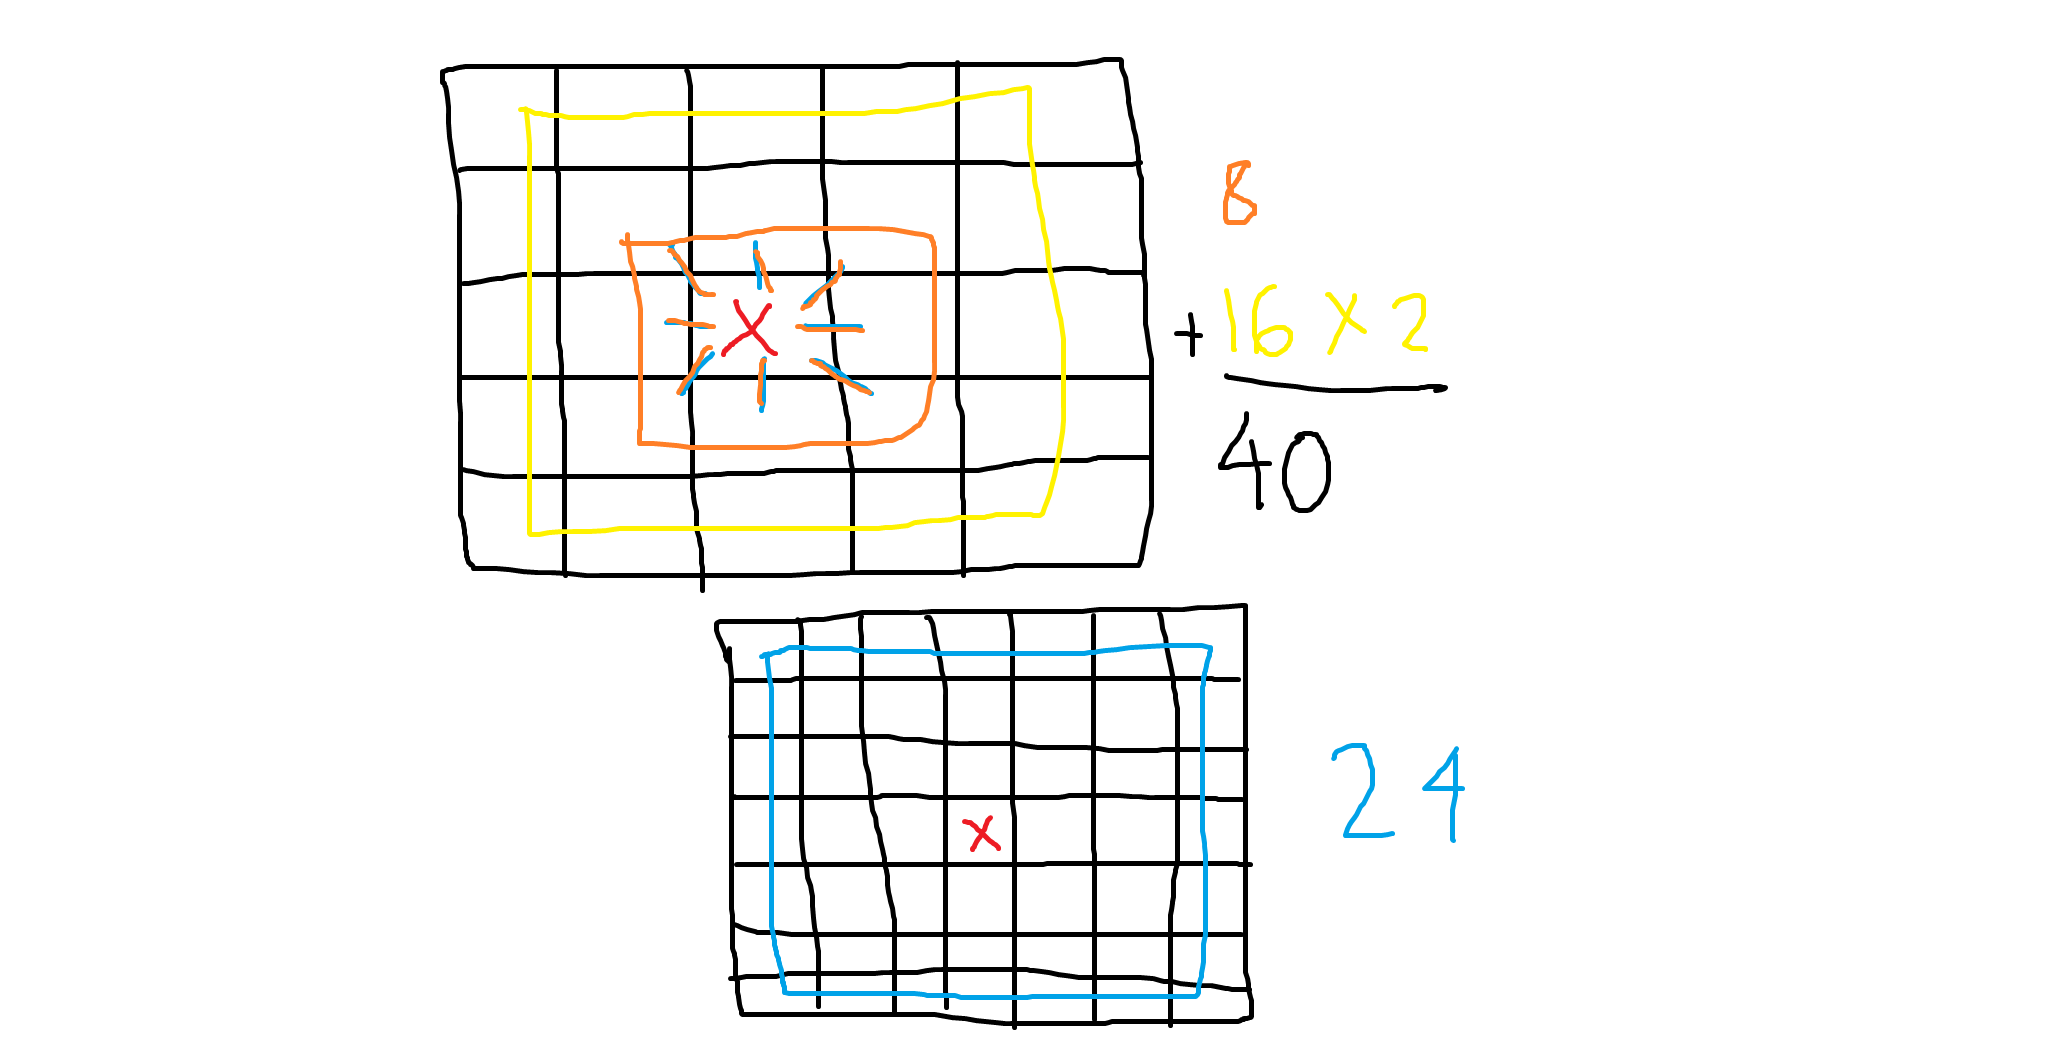 X
8
+ 16 x 2
40
x
24